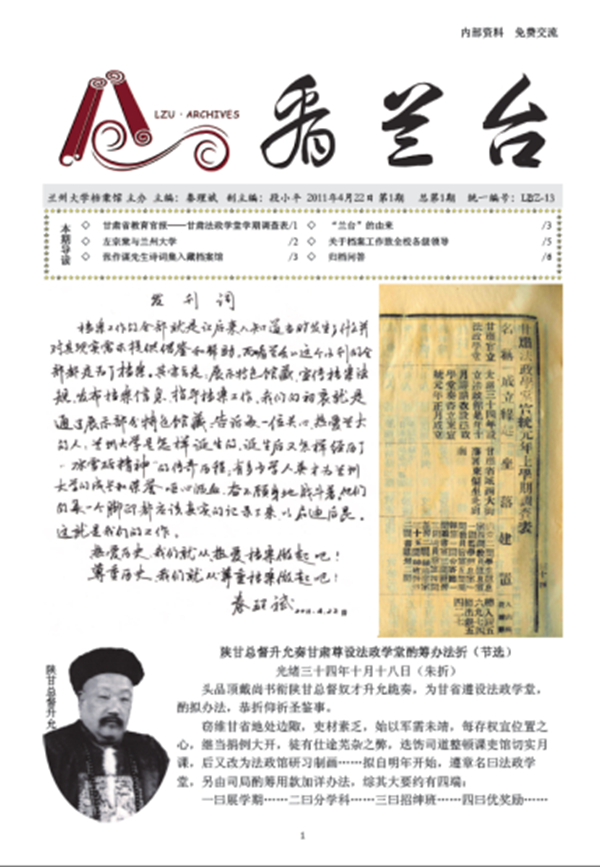 内部资料 免费交流
LZU · ARCHIVES
看兰台
兰州大学档案馆 主办 主编：秦理斌 副主编：段小平 2011年4月22日 第1期 总第1期 统一编号：LZZ-13
本期导读
◇ 甘肃省教育官报——甘肃法政学堂学期调查表/1
◇ 左宗棠与兰州大学 /2
◇ 张作谋先生诗词集入藏档案馆 /3
◇ “兰台”的由来 /3
◇ 关于档案工作致全校各级领导 /5
◇ 归档问答 /6
发刊词
档案工作的全部就是让后来人知道当时发生了什么并
对其现实需求提供借鉴和帮助。而看兰台这个小刊的全
部都是为了档案。其宗旨是：展示特色馆藏，宣传档案法
规，发布档案信息，指导档案工作。我们的初衷就是
通过展示部分特色馆藏，告诉每一位关心、热爱兰大
的人，兰州大学是怎样诞生的，诞生后又怎样经历了
的每一个脚印都应该真实的记录下来，以启迪后昆。
这就是我们的工作。
热爱历史，我们就从热爱档案做起吧！
尊重历史，我们就从尊重档案做起吧！
秦理斌 2011.4.22日
甘肃法政学堂宣统元年上学期调查表
名称 成立缘起 坐落 建置
陕甘总督升允
陕甘总督升允奏甘肃尊设法政学堂酌筹办法折（节选）
光绪三十四年十月十八日（朱折）
头品顶戴尚书衔陕甘总督奴才升允跪奏，为甘省遵设法政学堂，
酌拟办法，恭折仰祈圣鉴事。
窃维甘省地处边陬，吏材素乏，始以军需未靖，每存权宜位置之
心，继当捐例大开，徒有仕途芜杂之弊，迭饬司道整顿课吏馆切实月
课，后又改为法政馆研习制画……拟自明年开始，遵章名曰法政学
堂，另由司局酌筹用款加详办法，综其大要约有四端：
一曰展学期……二曰分学科……三曰招绅班……四曰优奖励……
1